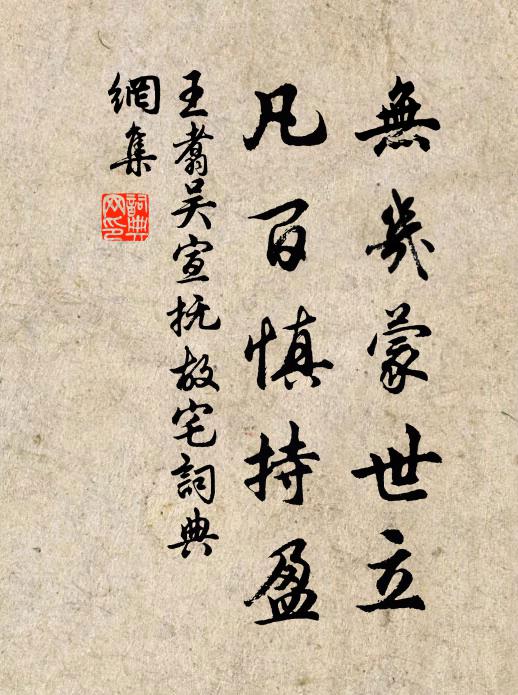 無幾蒙世立
凡百慎持盈
王翥吴宣抚故宅詞典
網集
詞典網印